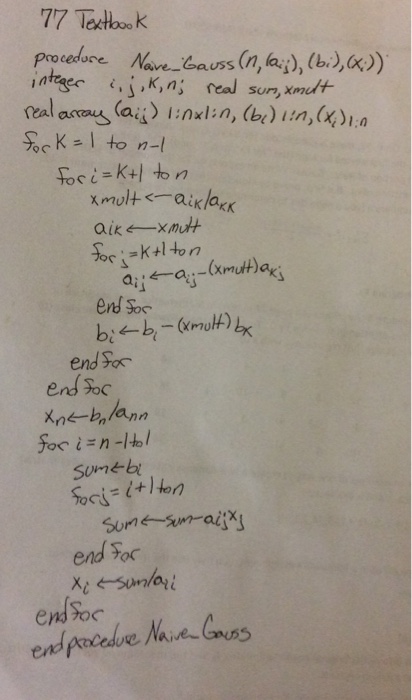 77 Textbook
procedure Naive_Gauss(n,(aij),(bi),(xi))
integer i,j,k,n; real sum,xmult
real array (aij)1:nx1:n, (bi)1:n, (xi)1:n
for K = 1 to n-1
for i = K+1 to n
xmult ← aik/akk
aik ← xmult
for j = K+1 to n
aij ← aij-(xmult)akj
end for
bi ← bi-(xmult)bk
end for
end for
xn ← bn/ann
for i = n-1 to 1
sum ← bi
for j = i+1 to n
sum ← sum-aijxj
end for
xi ← sum/aii
end for
end procedure Naive_Gauss